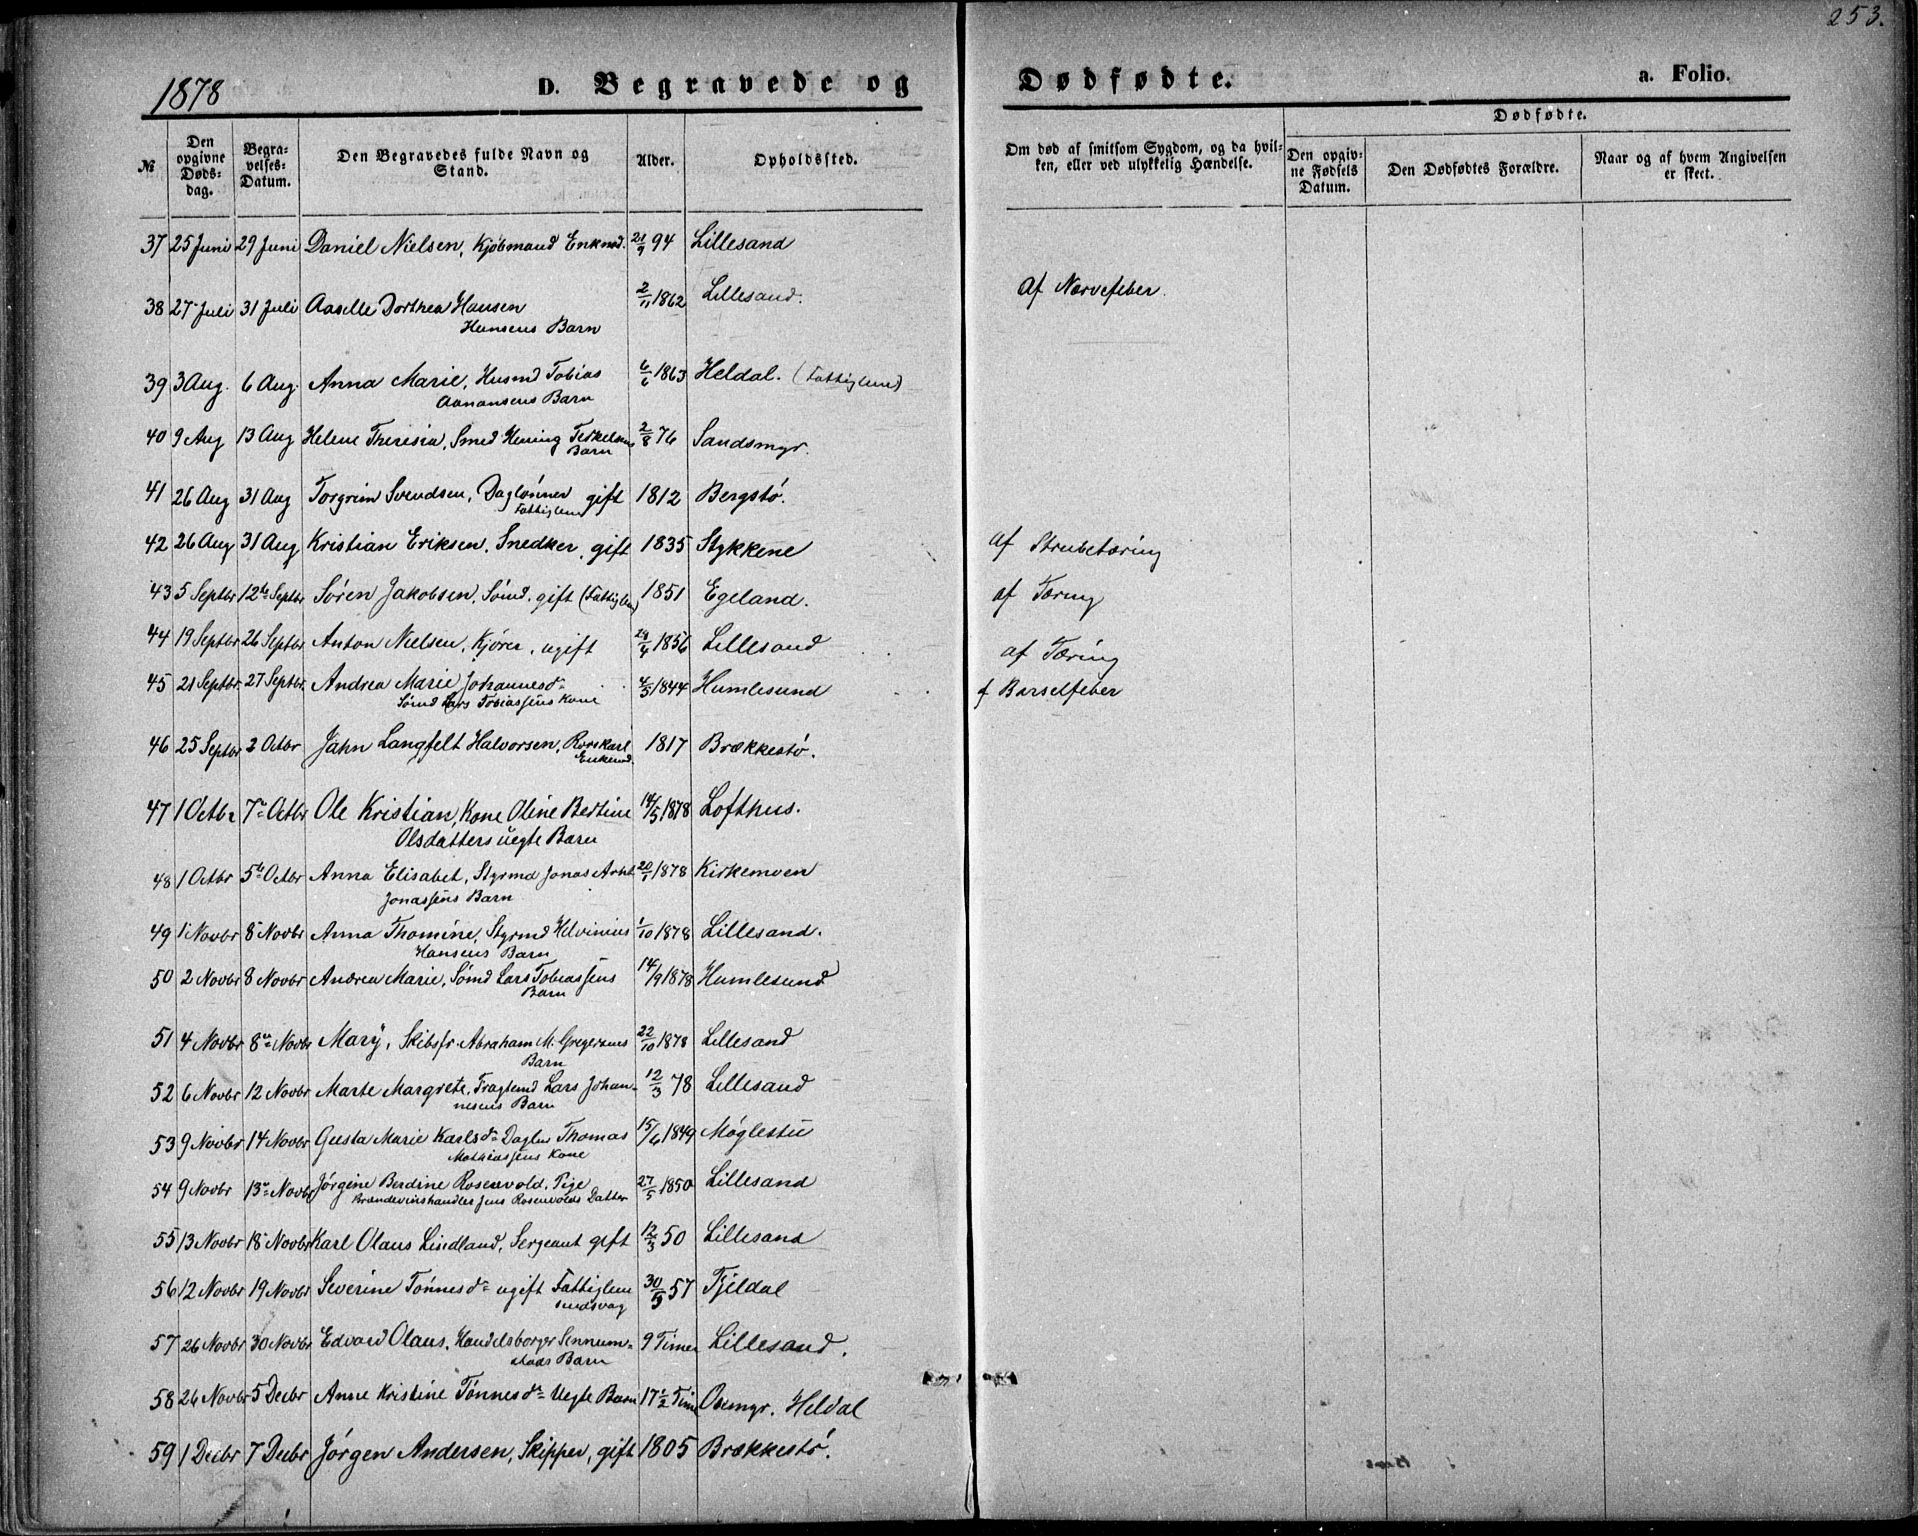 253.
1878
D. Begravede og Dødfødte.
a. Folio.
№
Den opgivne Døds-dag.
Begra-velses-Datum.
Den Begravedes fulde Navn og Stand.
Alder.
Opholdssted.
Om død af smitsom Sygdom, og da hvil-ken, eller ved ulykkelig Hændelse.
Dødfødte.
Den opgiv-ne Fødsels Datum.
Den Dødfødtes Forældre.
Naar og af hvem Angivelsen er skeet.
37 25 Juni 29 Juni Daniel Nielsen, Kjøbmand Enkmd. 21/9 94 Lillesand
38 27 Juli 31 Juli Aaselle Dorthea Hansen 2/11 1862 Lillesand. Af Nervefeber
Hansens Barn
39 3 Aug. 6 Aug. Anna Marie, Husmd Tobias 6/6 1863 Heldal. (Fattiglem)
Aanonsens Barn
40 9 Aug 13 Aug Helene Theresia, Smed Hening Terkelsens 2/8 76 Sandsmyr.
Barn
41 26 Aug 31 Aug Torgrim Svendsen, Daglønner gift 1812 Bergstø.
Fattiglem
42 26 Aug 31 Aug Kristian Eriksen, Snedker, gift 1835 Stykkene af Strubetæring
43 5 Septbr 12te Septbr Søren Jakobsen, Sømd. gift (Fattiglem) 1851 Egeland. af Tæring
44 19 Septbr 26 Septbr Anton Nielsen, Kjører, ugift 29/4 1856 Lillesand af Tæring
45 21 Septbr. 27 Septbr. Andrea Marie Johannesd. 4/5 1844 Humlesund f Barselfeber
Sømd Lars Tobiassens Kone
46 25 Septbr 2 Octbr Jahn Langfelt Halvorsen, Rorskarl 1817 Brækkestø.
Enkemd.
47 1 Octbr 7de Octbr Ole Kristian, Kone Oline Bertine 14/5 1878 Lofthus.
Olsdatters uegte Barn
48 1 Octbr 5te Octbr Anna Elisabet, Styrmd Jonas Arnt 20/1 1878 Kirkemoen
Jonassens Barn
49 1 Novbr 8 Novbr Anna Thomine, Styrmd Helvinius 1/10 1878 Lillesand.
Hansens Barn
50 2 Novbr 8 Novbr Andrea Marie, Sømd Lars Tobiassens 14/9 1878 Humlesund
Barn
51 4 Novbr 8de Novbr Mary, Skibsfr Abraham M. Gregersens 22/10 1878 Lillesand
Barn
52 6 Novbr 12 Novbr Marte Margrete, Fragtemd Lars Johan- 12/3 78 Lillesand
nesens Barn
53 9 Novbr 14 Novbr Gusta Marie Karlsd. Dagløn Thomas 15/6 1849 Møglestu
Mathiassens Kone
54 9 Novbr 13de Novbr Jørgine Berdine Rosenvold, Pige 27/5 1850 Lillesand
Brændevinshandler Jens Rosenvolds Datter
55 13 Novbr 18 Novbr Karl Olaus Lindland, Sergeant gift 12/3 50 Lillesand
56 12 Novbr 19 Novbr Severine Tønnesd. ugift Fattiglem 30/5 57 Tjeldal
sindsvag
57 26 Novbr 30 Novbr Edvard Olaus, Handelsborger Sennum- 9 Timer Lillesand.
stads Barn
58 26 Novbr 5 Decbr Anne Kristine Tønnesd. Uegte Barn 17 1/2 Time Osemyr. Heldal
59 1 Decbr 7 Decbr Jørgen Andersen, Skipper, gift 1805 Brækkestø.